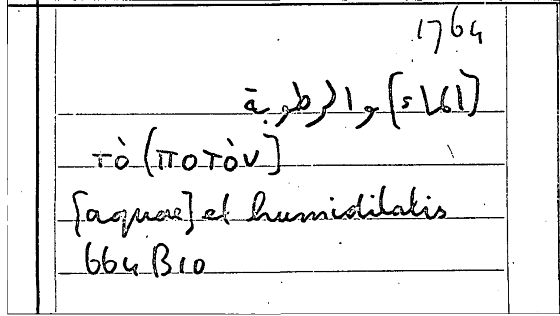 1764
[الماء] والرطوبة
τὸ (ποτὸν]
[aquae] et humiditatis
664 B10